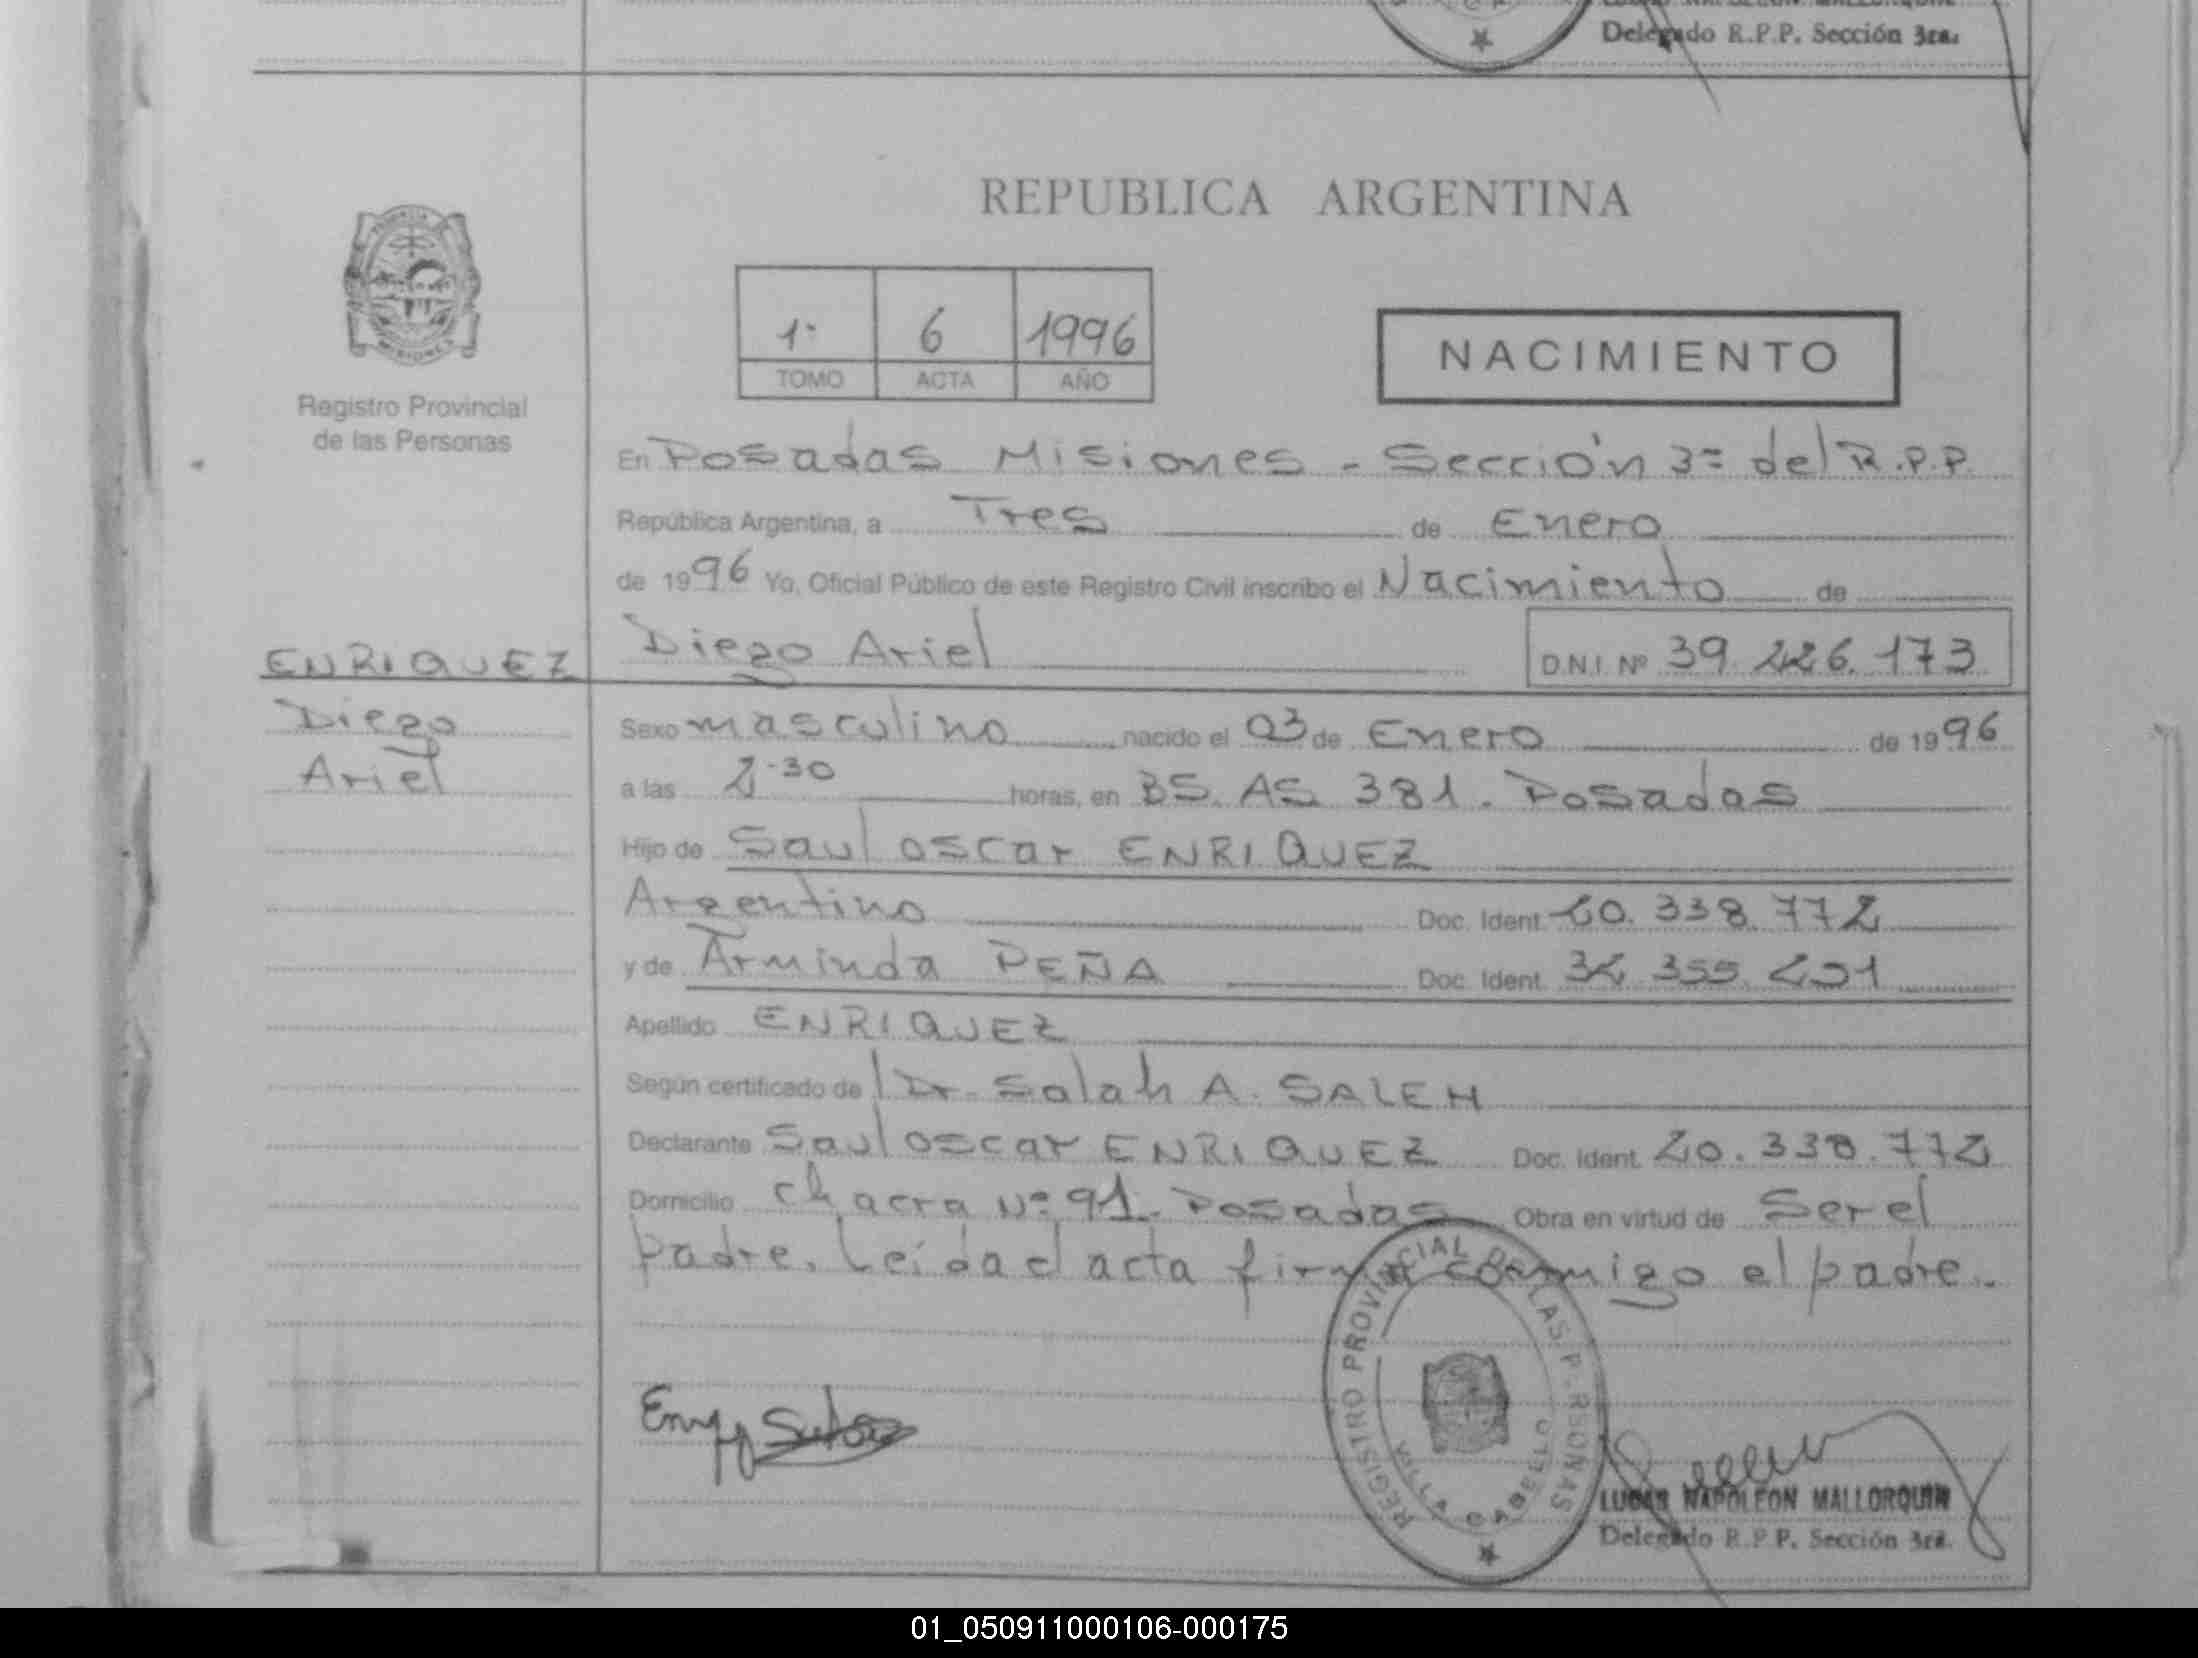 Delegado R.P.P. Sección 3ra.
REPUBLICA ARGENTINA
1º 6 1996
TOMO ACTA AÑO
NACIMIENTO
MISIONES
Registro Provincial
de las Personas
En Posadas Misiones - Sección 3ª del R.P.P.
República Argentina, a Tres de Enero
de 1996 Yo, Oficial Público de este Registro Civil inscribo el Nacimiento de
ENRIQUEZ
Diego Ariel D.N.I. Nº 39.226.173
Diego
Ariel
Sexo masculino nacido el 03 de Enero de 1996
a las 2.30 horas, en BS. AS 381. Posadas
Hijo de Saul Oscar ENRIQUEZ
Argentino Doc. Ident. 20.338.772
y de Arminda PEÑA Doc. Ident.
Apellido ENRIQUEZ
Según certificado de Dr. Salah A. SALEH
Declarante Saul Oscar ENRIQUEZ Doc. Ident. 20.338.772
Domicilio chacra Nº 91. Posadas Obra en virtud de Ser el
padre. Leída el acta firma conmigo el padre.
REGISTRO PROVINCIAL DE LAS P.RSONAS
VILLA CABELLO
LUCAS NAPOLEON MALLORQUIN
Delegado R.P.P. Sección 3ra.
01_050911000106-000175